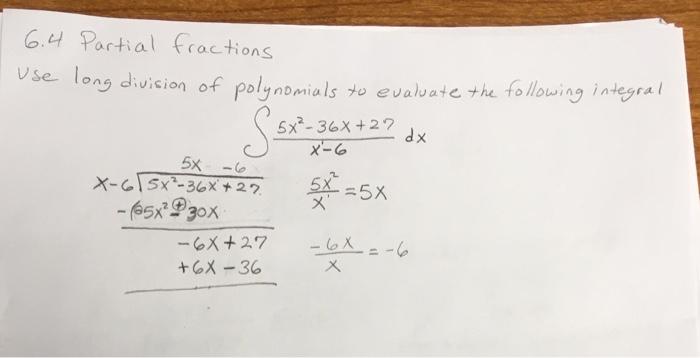 6.4 Partial fractions
Use long division of polynomials to evaluate the following integral
∫ 5x²-36x+27 / x-6 dx
5x -6
x-6 5x²-36x+27
5x²/x = 5x
-(5x² 30x
-6x+27
-6x/x = -6
+6x-36